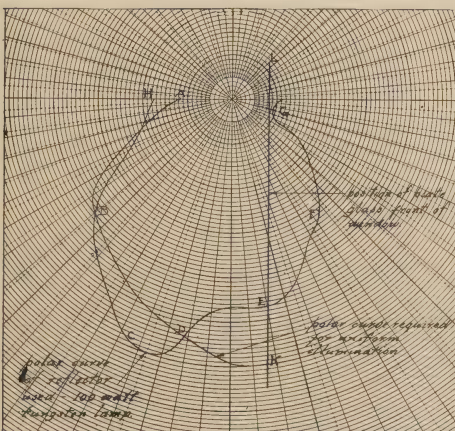 L
H
A
G
position of plate
glass front of
window.
B
F
E
D
C
K
polar curve required
for uniform
illumination
polar curve
of reflector
used - 100 watt
tungsten lamp.